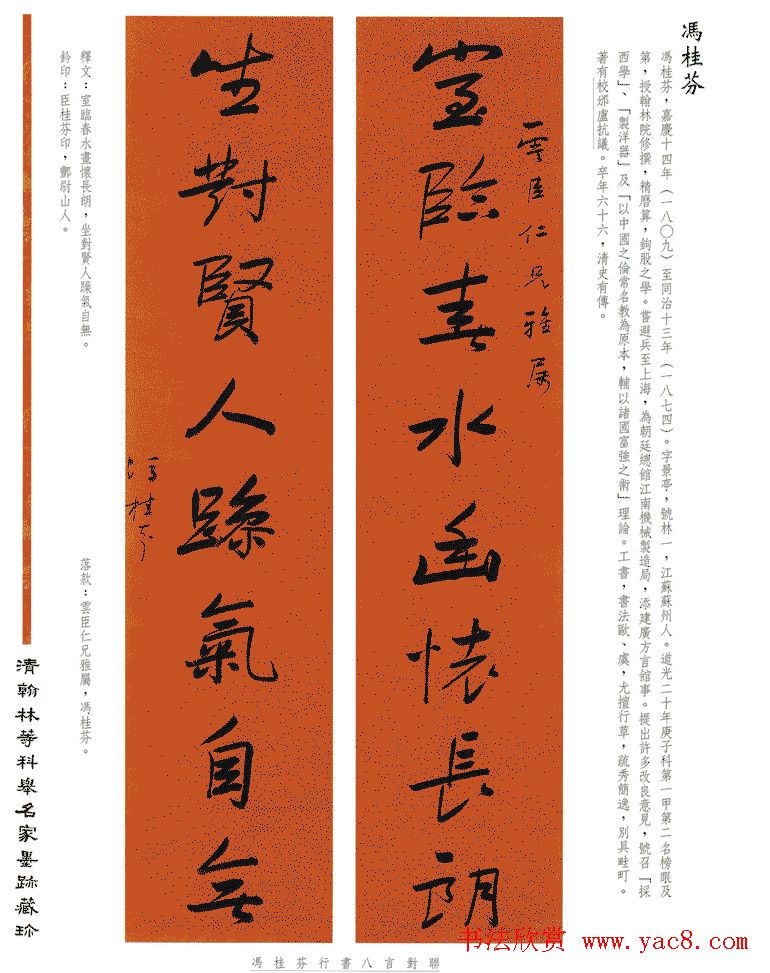 馮桂芬
馮桂芬，嘉慶十四年（一八〇九）至同治十三年（一八七四）。字景亭，號林一，江蘇蘇州人。道光二十年庚子科第一甲第二名榜眼及
第，授翰林院修撰，精曆算，鉤股之學。嘗避兵至上海，為朝廷總館江南機械製造局，添建廣方言館事。提出許多改良意見，號召「採
西學」、「製洋器」及「以中國之倫常名教為原本，輔以諸國富強之術」理論。工書，書法歐、虞，尤擅行草，疏秀簡逸，別具畦町。
著有校邠廬抗議。卒年六十六，清史有傳。
雲臣仁兄雅屬
室臨春水幽懷長朗
坐對賢人躁氣自無
馮桂芬
釋文：室臨春水畫懷長朗，坐對賢人躁氣自無。
落款：雲臣仁兄雅屬，馮桂芬。
鈐印：臣桂芬印，鄧尉山人。
清翰林等科舉名家墨跡藏珍
馮桂芬行書八言對聯
书法欣赏 www.yac8.com